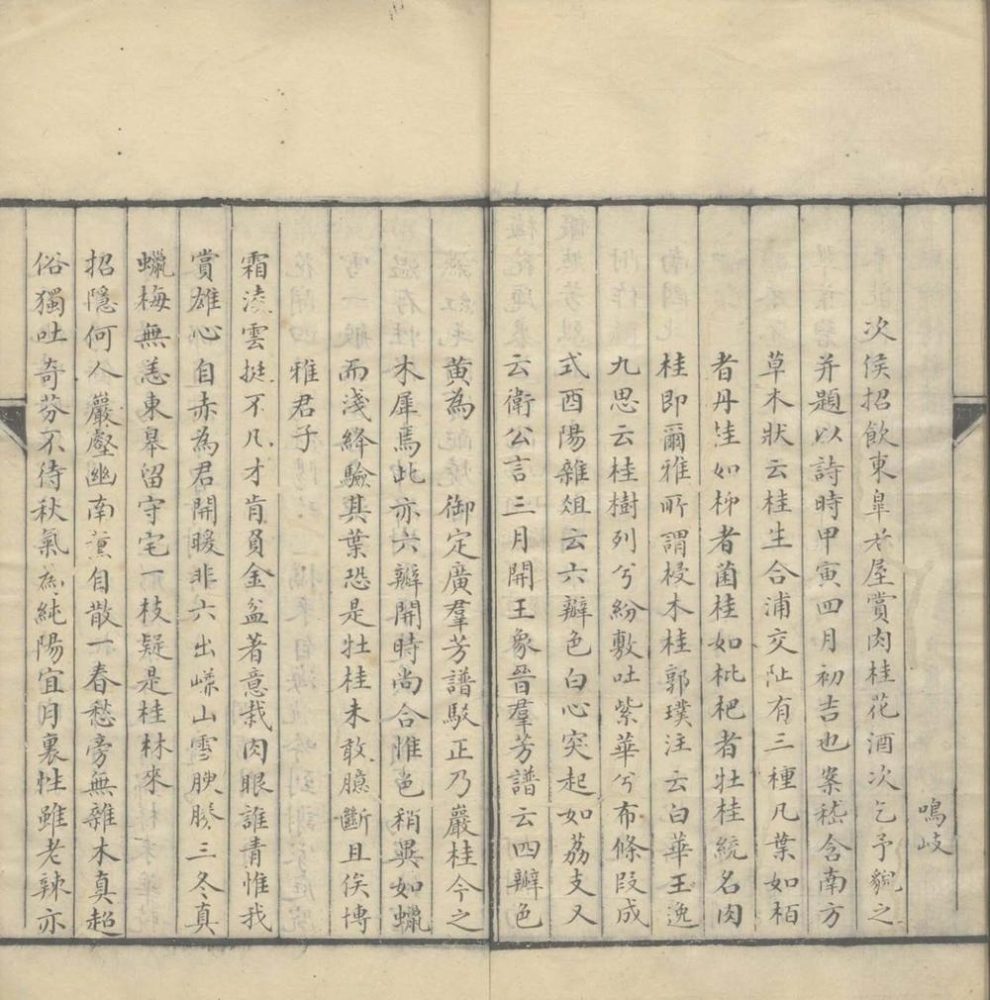 鳴岐
次侯招飲東臯老屋賞肉桂花酒次乞予貌之
并題以詩時甲寅四月初吉也案嵇含南方
草木狀云桂生合浦交阯有三種凡葉如栢
者丹桂如柳者菌桂如枇杷者牡桂統名肉
桂即爾雅所謂梫木桂郭璞注云白華王逸
九思云桂樹列兮紛敷吐紫華兮布條段成
式酉陽雜俎云六瓣色白心突起如荔支又
云衛公言三月開王象晉羣芳譜云四瓣色
黃為 御定廣羣芳譜駁正乃巖桂今之
木犀焉此亦六瓣開時尚合惟色稍異如蠟
而淺絳驗其葉恐是牡桂未敢臆斷且俟博
雅君子
霜凌雲挺不凡才肯負金盆著意栽肉眼誰青惟我
賞雄心自赤為君開暖非六出嵊山雪映勝三冬真
蠟梅無恙東臯留守宅一枝疑是桂林來
招隱何人巖壑幽南薰自散一春愁旁無雜木真超
俗獨吐奇芬不待秋氣爲純陽宜月裏性雖老辣亦